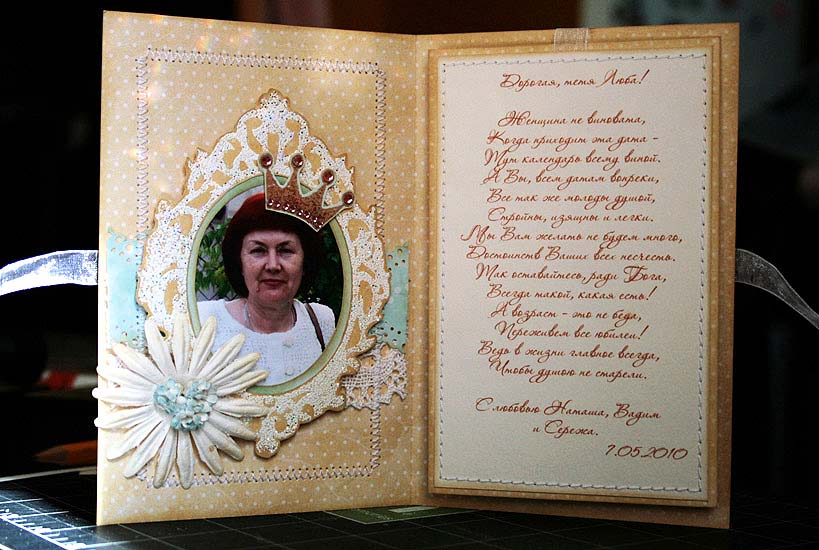 Дорогая, тетя Люба!
Женщина не виновата,
Когда приходит эта дата -
Тут календарь всему виной.
А Вы, всем датам вопреки,
Все так же молоды душой,
Стройны, изящны и легки.
Мы Вам желать не будем много,
Достоинств Ваших всех несчесть.
Так оставайтесь, ради Бога,
Всегда такой, какая есть!
А возраст - это не беда,
Переживем все юбилеи!
Ведь в жизни главное всегда,
Чтобы душою не старели.
С любовью Наташа, Вадим
и Сережа.
7.05.2010